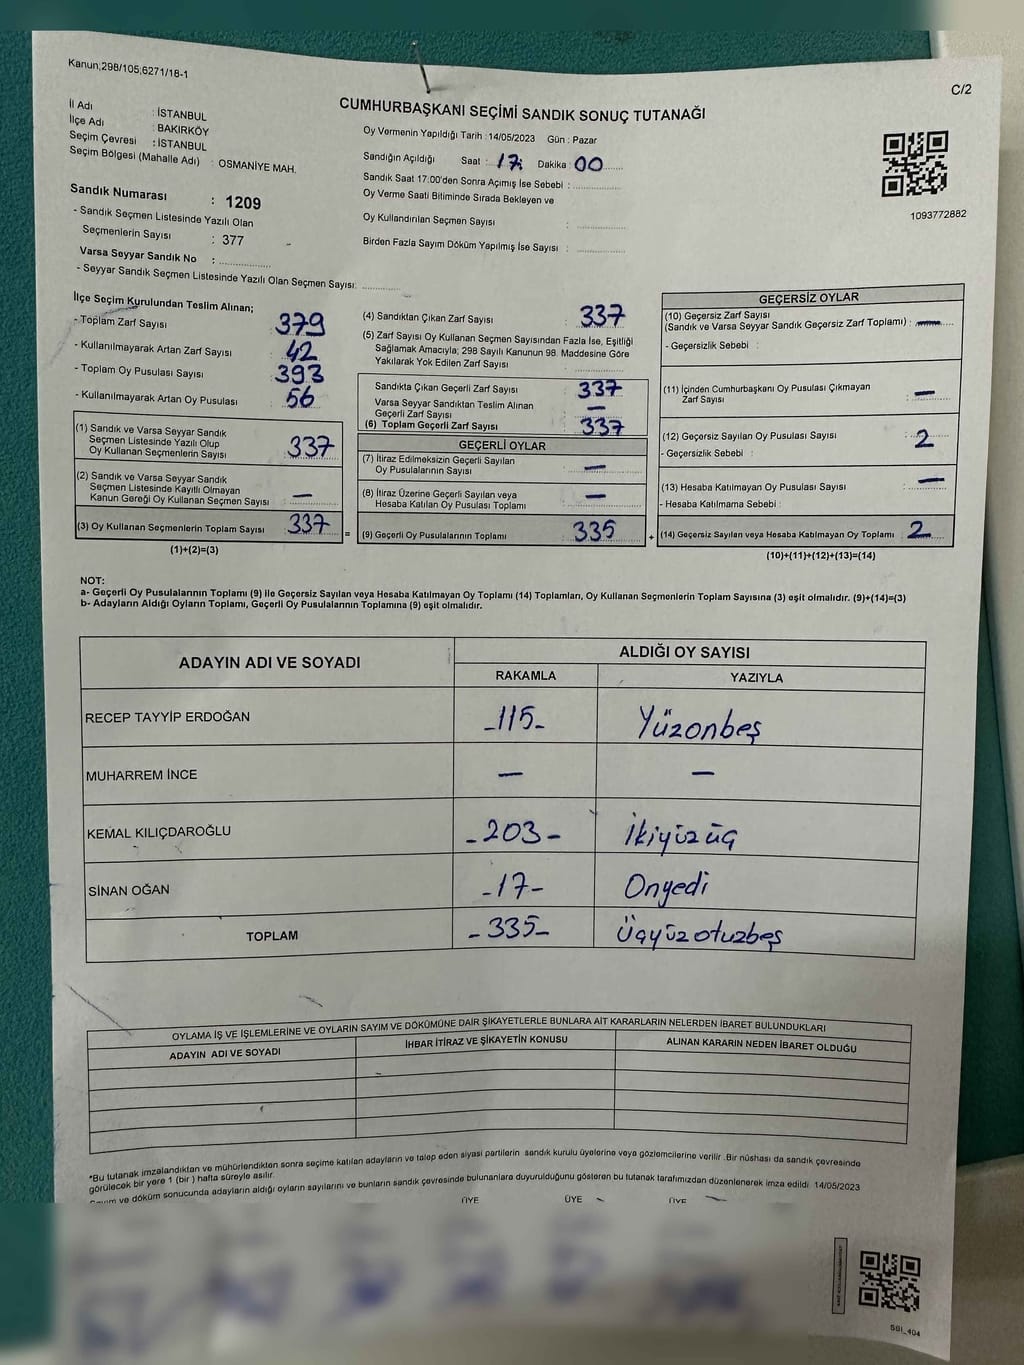 Kanun;298/105;6271/18-1
C/2
CUMHURBAŞKANI SEÇİMİ SANDIK SONUÇ TUTANAĞI
İl Adı : İSTANBUL
İlçe Adı : BAKIRKÖY
Seçim Çevresi : İSTANBUL
Seçim Bölgesi (Mahalle Adı) : OSMANİYE MAH.
Sandık Numarası : 1209
- Sandık Seçmen Listesinde Yazılı Olan
Seçmenlerin Sayısı : 377
Varsa Seyyar Sandık No :
- Seyyar Sandık Seçmen Listesinde Yazılı Olan Seçmen Sayısı:
Oy Vermenin Yapıldığı Tarih :14/05/2023 Gün : Pazar
Sandığın Açıldığı Saat : 17: Dakika : 00
Sandık Saat 17:00'den Sonra Açımış İse Sebebi :
Oy Verme Saati Bitiminde Sırada Bekleyen ve
Oy Kullandırılan Seçmen Sayısı :
Birden Fazla Sayım Döküm Yapılmış İse Sayısı :
1093772882
İlçe Seçim Kurulundan Teslim Alınan;
- Toplam Zarf Sayısı : 379
- Kullanılmayarak Artan Zarf Sayısı : 42
- Toplam Oy Pusulası Sayısı : 393
- Kullanılmayarak Artan Oy Pusulası : 56
(1) Sandık ve Varsa Seyyar Sandık
Seçmen Listesinde Yazılı Olup
Oy Kullanan Seçmenlerin Sayısı : 337
(2) Sandık ve Varsa Seyyar Sandık
Seçmen Listesinde Kayıtlı Olmayan
Kanun Gereği Oy Kullanan Seçmen Sayısı : —
(3) Oy Kullanan Seçmenlerin Toplam Sayısı : 337
(1)+(2)=(3)
=
(4) Sandıktan Çıkan Zarf Sayısı : 337
(5) Zarf Sayısı Oy Kullanan Seçmen Sayısından Fazla İse, Eşitliği
Sağlamak Amacıyla; 298 Sayılı Kanunun 98. Maddesine Göre
Yakılarak Yok Edilen Zarf Sayısı :
Sandıkta Çıkan Geçerli Zarf Sayısı : 337
Varsa Seyyar Sandıktan Teslim Alınan
Geçerli Zarf Sayısı : —
(6) Toplam Geçerli Zarf Sayısı : 337
GEÇERLİ OYLAR
(7) İtiraz Edilmeksizin Geçerli Sayılan
Oy Pusulalarının Sayısı : —
(8) İtiraz Üzerine Geçerli Sayılan veya
Hesaba Katılan Oy Pusulası Toplamı : —
(9) Geçerli Oy Pusulalarının Toplamı : 335
+
GEÇERSİZ OYLAR
(10) Geçersiz Zarf Sayısı
(Sandık ve Varsa Seyyar Sandık Geçersiz Zarf Toplamı) : —
- Geçersizlik Sebebi :
(11) İçinden Cumhurbaşkanı Oy Pusulası Çıkmayan
Zarf Sayısı : —
(12) Geçersiz Sayılan Oy Pusulası Sayısı : 2
- Geçersizlik Sebebi :
(13) Hesaba Katılmayan Oy Pusulası Sayısı : —
- Hesaba Katılmama Sebebi :
(14) Geçersiz Sayılan veya Hesaba Katılmayan Oy Toplamı : 2
(10)+(11)+(12)+(13)=(14)
NOT:
a- Geçerli Oy Pusulalarının Toplamı (9) ile Geçersiz Sayılan veya Hesaba Katılmayan Oy Toplamı (14) Toplamları, Oy Kullanan Seçmenlerin Toplam Sayısına (3) eşit olmalıdır. (9)+(14)=(3)
b- Adayların Aldığı Oyların Toplamı, Geçerli Oy Pusulalarının Toplamına (9) eşit olmalıdır.
ADAYIN ADI VE SOYADI
ALDIĞI OY SAYISI
RAKAMLA YAZIYLA
RECEP TAYYİP ERDOĞAN -115- Yüzonbeş
MUHARREM İNCE — —
KEMAL KILIÇDAROĞLU -203- İkiyüzüç
SİNAN OĞAN -17- Onyedi
TOPLAM -335- Üçyüzotuzbeş
OYLAMA İŞ VE İŞLEMLERİNE VE OYLARIN SAYIM VE DÖKÜMÜNE DAİR ŞİKAYETLERLE BUNLARA AİT KARARLARIN NELERDEN İBARET BULUNDUKLARI
ADAYIN ADI VE SOYADI İHBAR İTİRAZ VE ŞİKAYETİN KONUSU ALINAN KARARIN NEDEN İBARET OLDUĞU
*Bu tutanak imzalandıktan ve mühürlendikten sonra seçime katılan adayların ve talep eden siyasi partilerin sandık kurulu üyelerine veya gözlemcilerine verilir .Bir nüshası da sandık çevresinde
görülecek bir yere 1 (bir ) hafta süreyle asılır.
Sayım ve döküm sonucunda adayların aldığı oyların sayılarını ve bunların sandık çevresinde bulunanlara duyurulduğunu gösteren bu tutanak tarafımızdan düzenlenerek imza edildi 14/05/2023
ÜYE ÜYE ÜYE
SBI_404